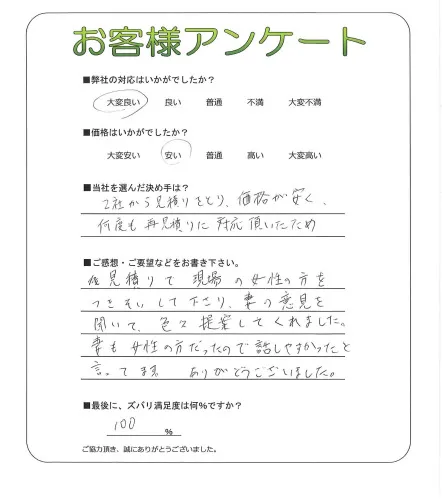 お客様アンケート
■弊社の対応はいかがでしたか？
大変良い 良い 普通 不満 大変不満
■価格はいかがでしたか？
大変安い 安い 普通 高い 大変高い
■当社を選んだ決め手は？
2社から見積りをとり、価格が安く、
何度も再見積りに対応頂いたため
■ご感想・ご要望などをお書き下さい。
見積りで 現場の女性の方を
つきそいして下さり、妻の意見を
聞いて、色々提案してくれました。
妻も女性の方だったので話しやすかったと
言ってます ありがとうございました。
■最後に、ズバリ満足度は何％ですか？
100 %
ご協力頂き、誠にありがとうございました。